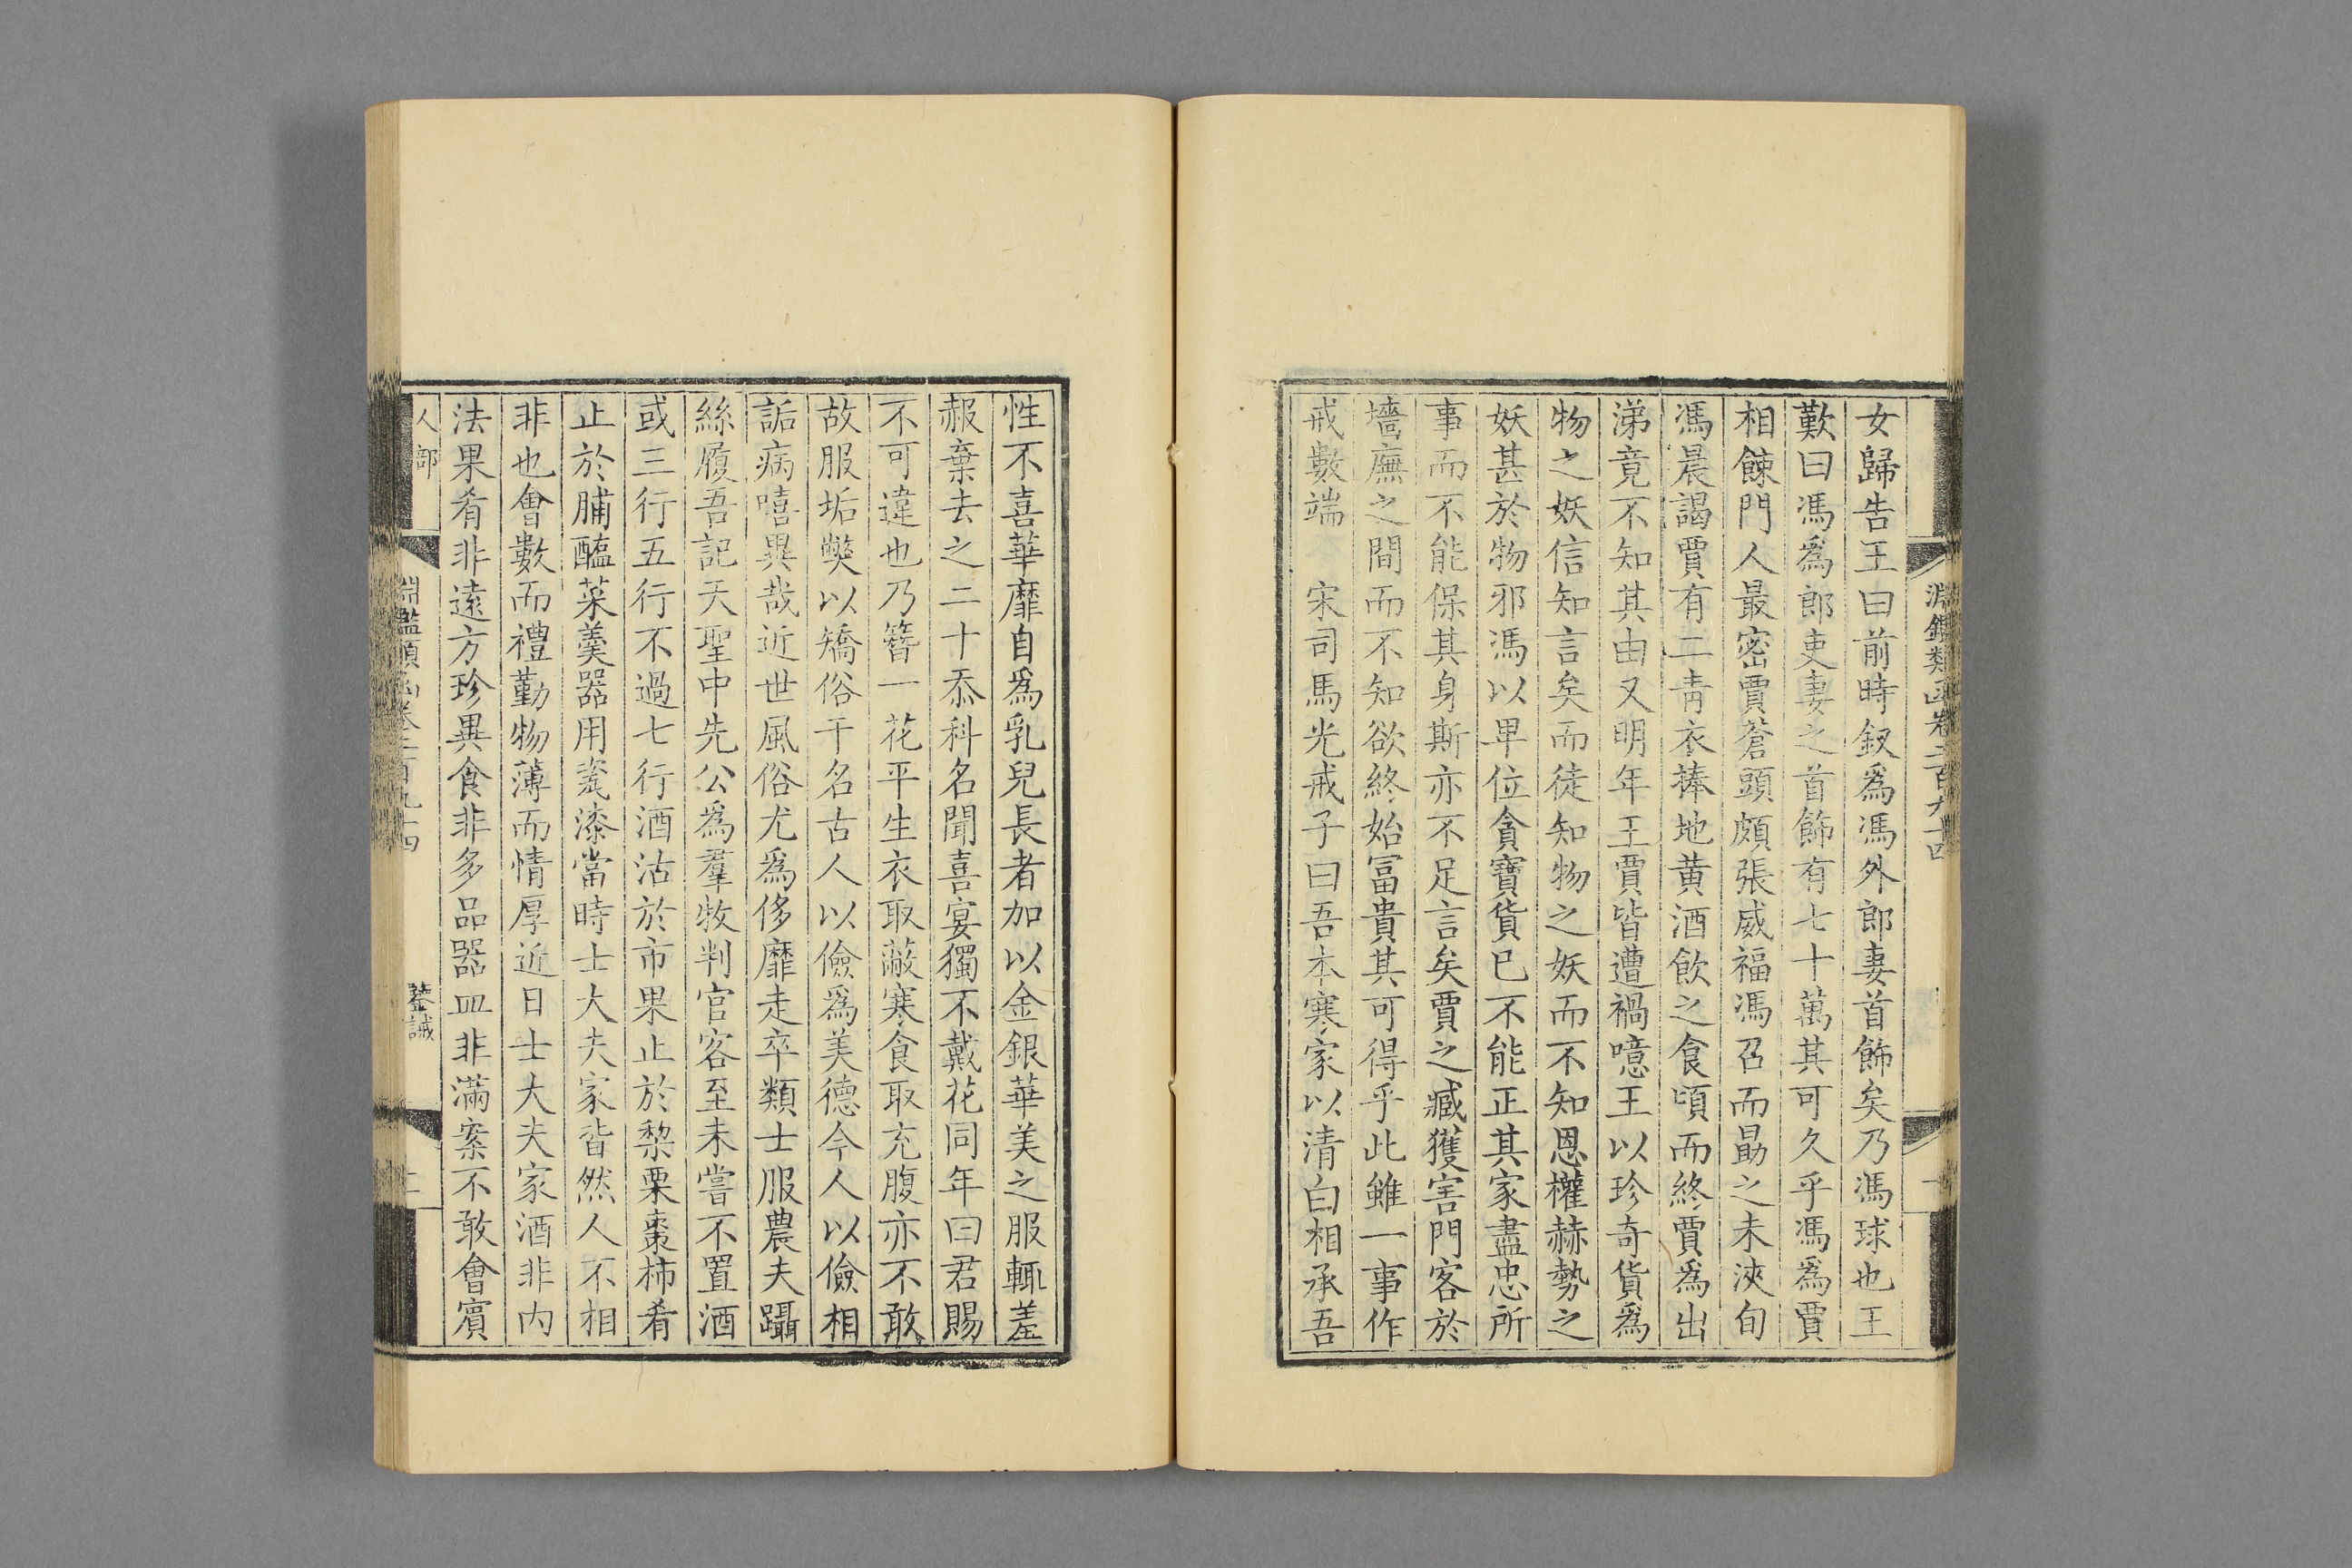 女歸告王曰前時釵爲馮外郎妻首飾矣乃馮球也王
歎曰馮爲郎吏妻之首飾有七十萬其可久乎馮爲賈
相餗門人最密賈蒼頭頗張威福馮召而勗之未浹旬
馮晨謁賈有二靑衣捧地黄酒飲之食頃而終賈爲出
涕竟不知其由又明年王賈皆遭禍噫王以珍奇貨爲
物之妖信知言矣而徒知物之妖而不知恩權赫勢之
妖甚於物邪馮以卑位貪寶貨已不能正其家盡忠所
事而不能保其身斯亦不足言矣賈之臧獲害門客於
墻廡之間而不知欲終始富貴其可得乎此雖一事作
戒數端　宋司馬光戒子曰吾本寒家以清白相承吾
性不喜華靡自爲乳兒長者加以金銀華美之服輒羞
赧棄去之二十忝科名聞喜宴獨不戴花同年曰君賜
不可違也乃簪一花平生衣取蔽寒食取充腹亦不敢
故服垢獘以矯俗干名古人以儉爲美德今人以儉相
詬病嘻異哉近世風俗尤爲侈靡走卒類士服農夫躡
絲履吾記天聖中先公爲羣牧判官客至未嘗不置酒
或三行五行不過七行酒沽於市果止於黎栗棗柿肴
止於脯醢菜羮器用瓷漆當時士大夫家皆然人不相
非也會數而禮勤物薄而情厚近日士大夫家酒非内
法果肴非遠方珍異食非多品器皿非滿案不敢會賓
人部
淵鑑類函卷二百九十四
鑒誡